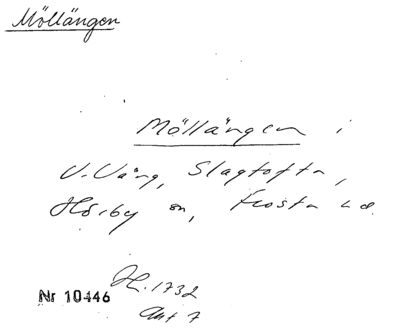 Möllängen
Möllängen i
V. Väng, Slagtofta,
Hörby sn, Frosta hd.
H. 1732
Akt 7
Nr 10446